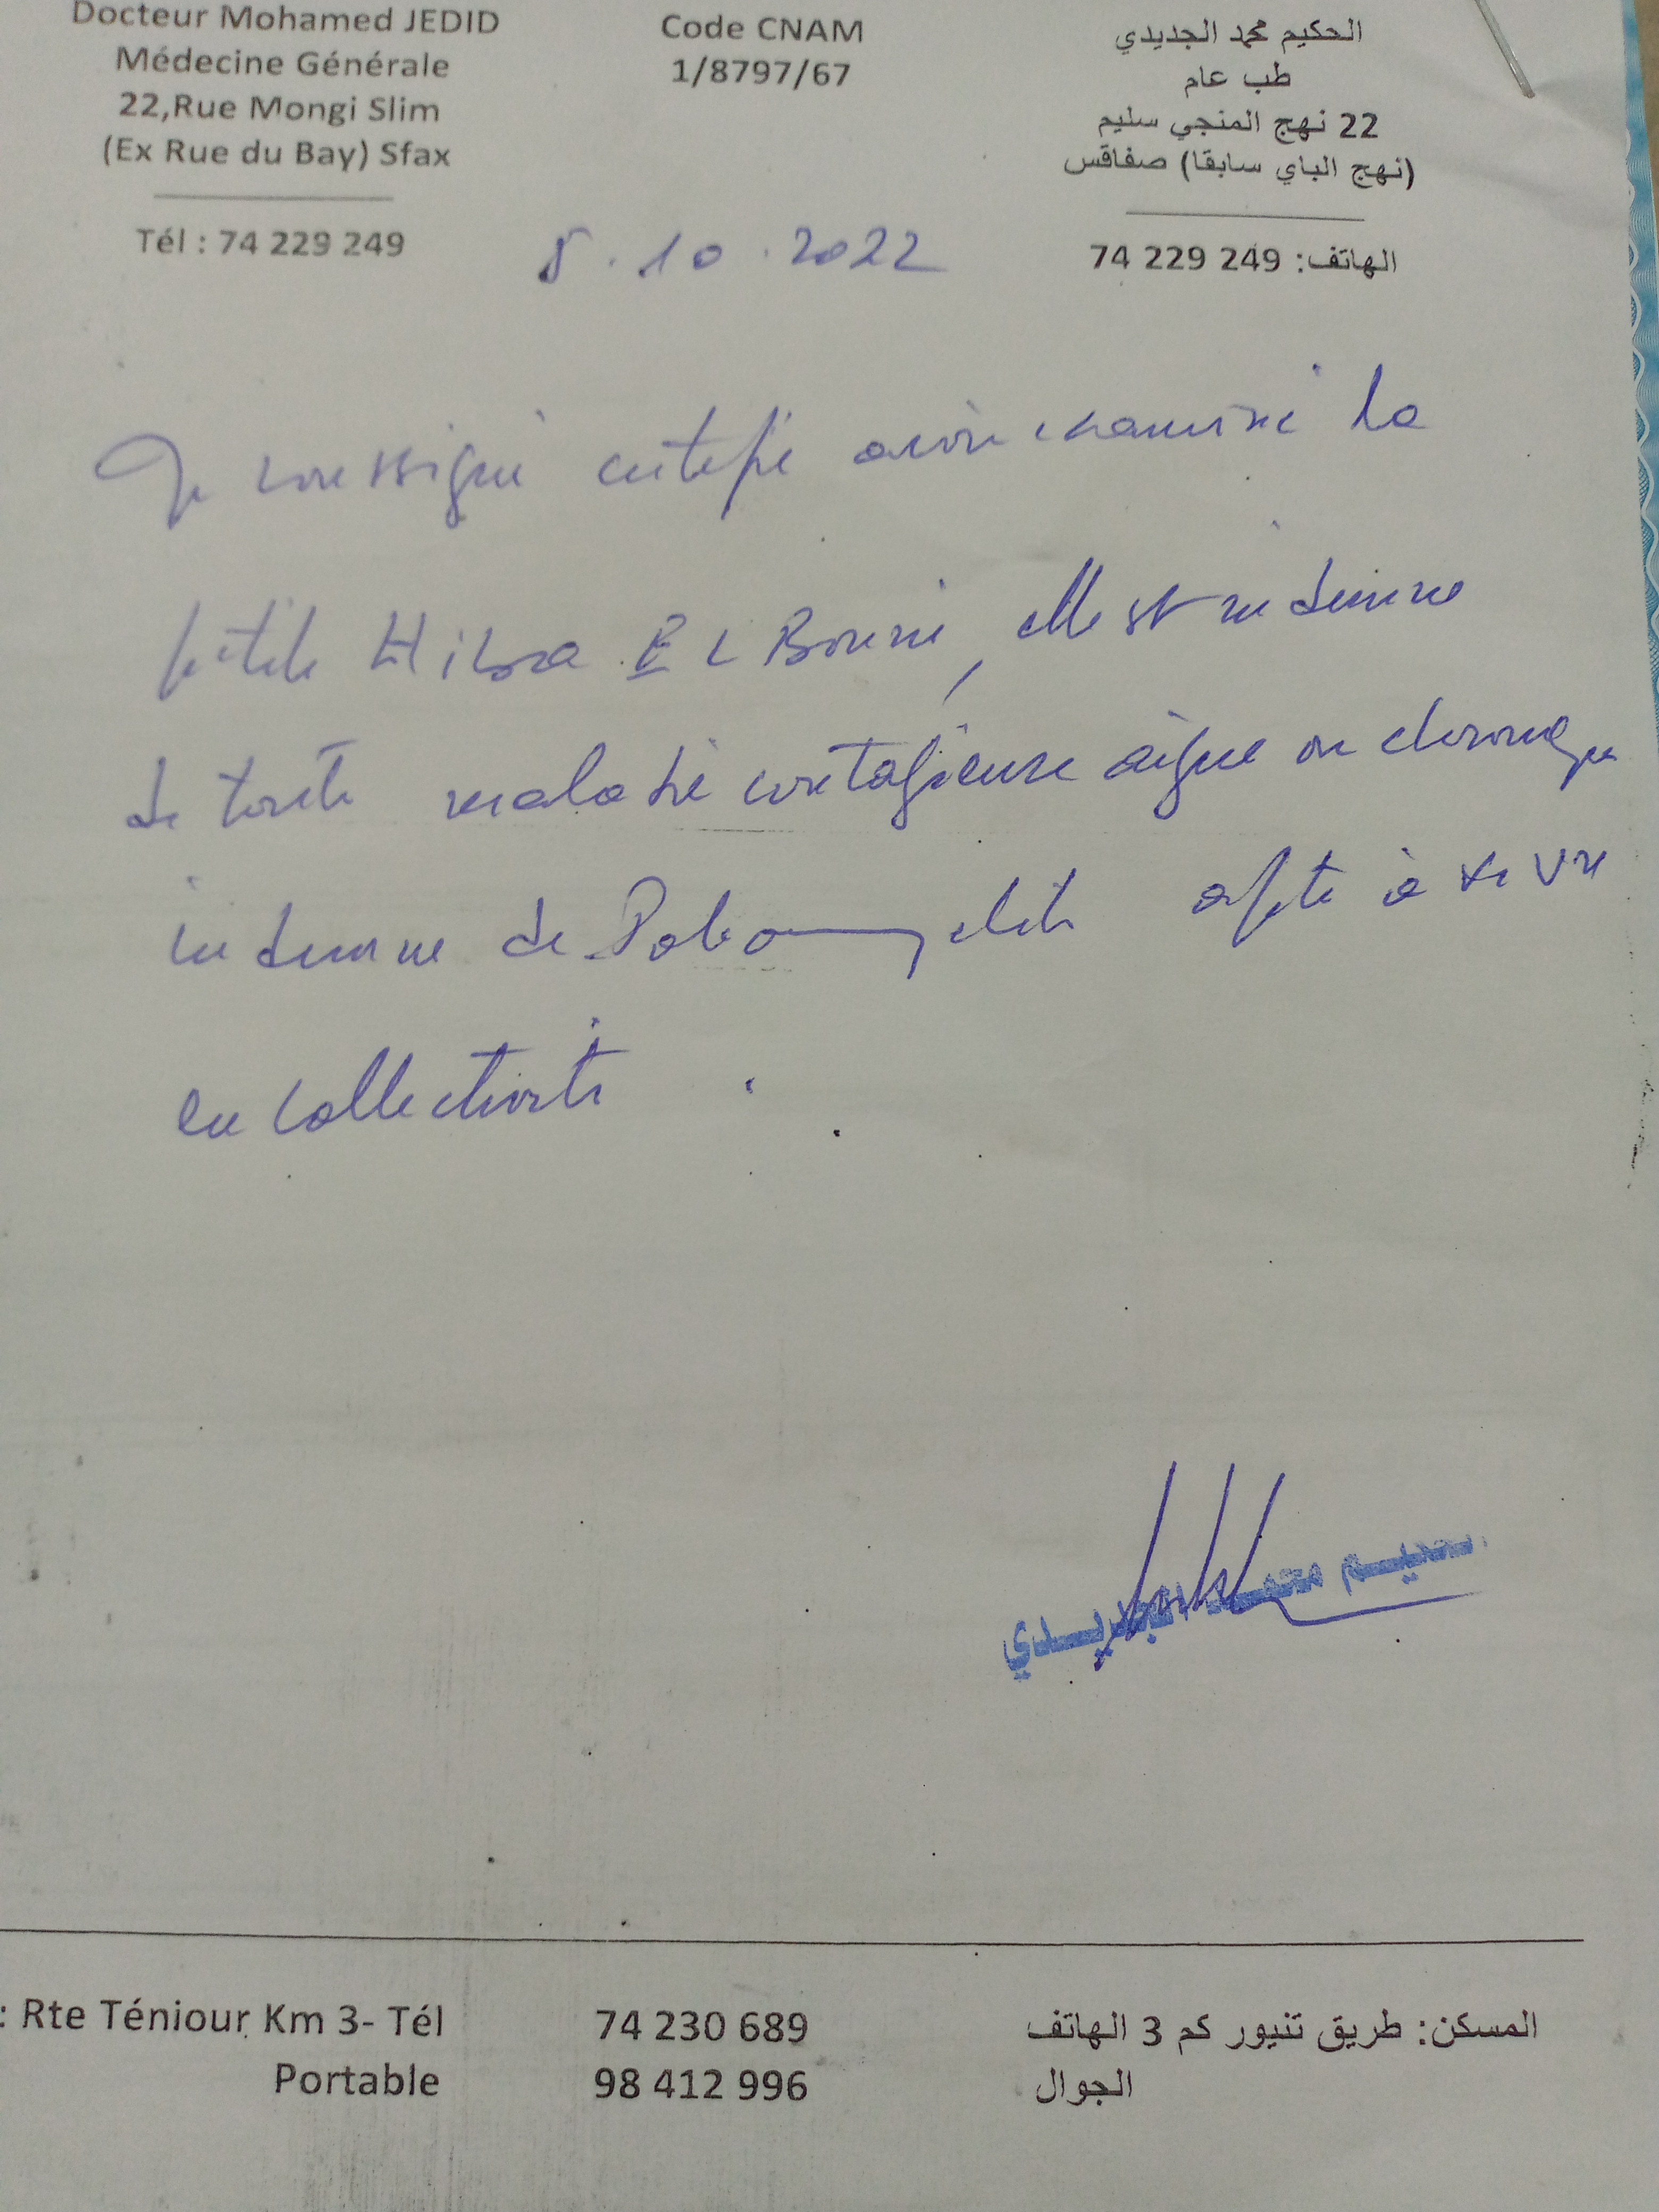 Docteur Mohamed JEDID
Médecine Générale
22,Rue Mongi Slim
(Ex Rue du Bay) Sfax
Tél : 74 229 249
Code CNAM
1/8797/67
الحكيم محمد الجديدي
طب عام
22 نهج المنجي سليم
(نهج الباي سابقا) صفاقس
الهاتف: 74 229 249
10.2022
Je soussigné certifie avoir examiné la
petite Hiba EL, elle est indemne
de toute maladie contagieuse aigue ou chronique
indemne de Poliomyelite apte à vivre
en collectivité.
حكيم محمد الجديدي
: Rte Téniour Km 3- Tél 74 230 689 المسكن: طريق تنيور كم 3 الهاتف
Portable 98 412 996 الجوال